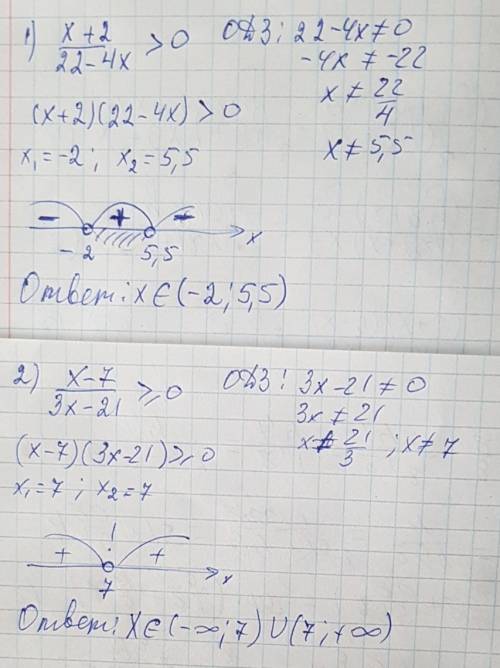 1) (x+2)/(22-4x) > 0   ОДЗ: 22-4x≠0
-4x ≠ -22
(x+2)(22-4x) > 0   x ≠ 22/4
x₁=-2; x₂=5,5   x≠5,5
- + -
-2 5,5 x
Ответ: x∈(-2; 5,5)
2) (x-7)/(3x-21) ≥ 0   ОДЗ: 3x-21≠0
3x≠21
(x-7)(3x-21)≥0   x≠21/3; x≠7
x₁=7; x₂=7
+ +
7 x
Ответ: x∈(-∞; 7)∪(7; +∞)